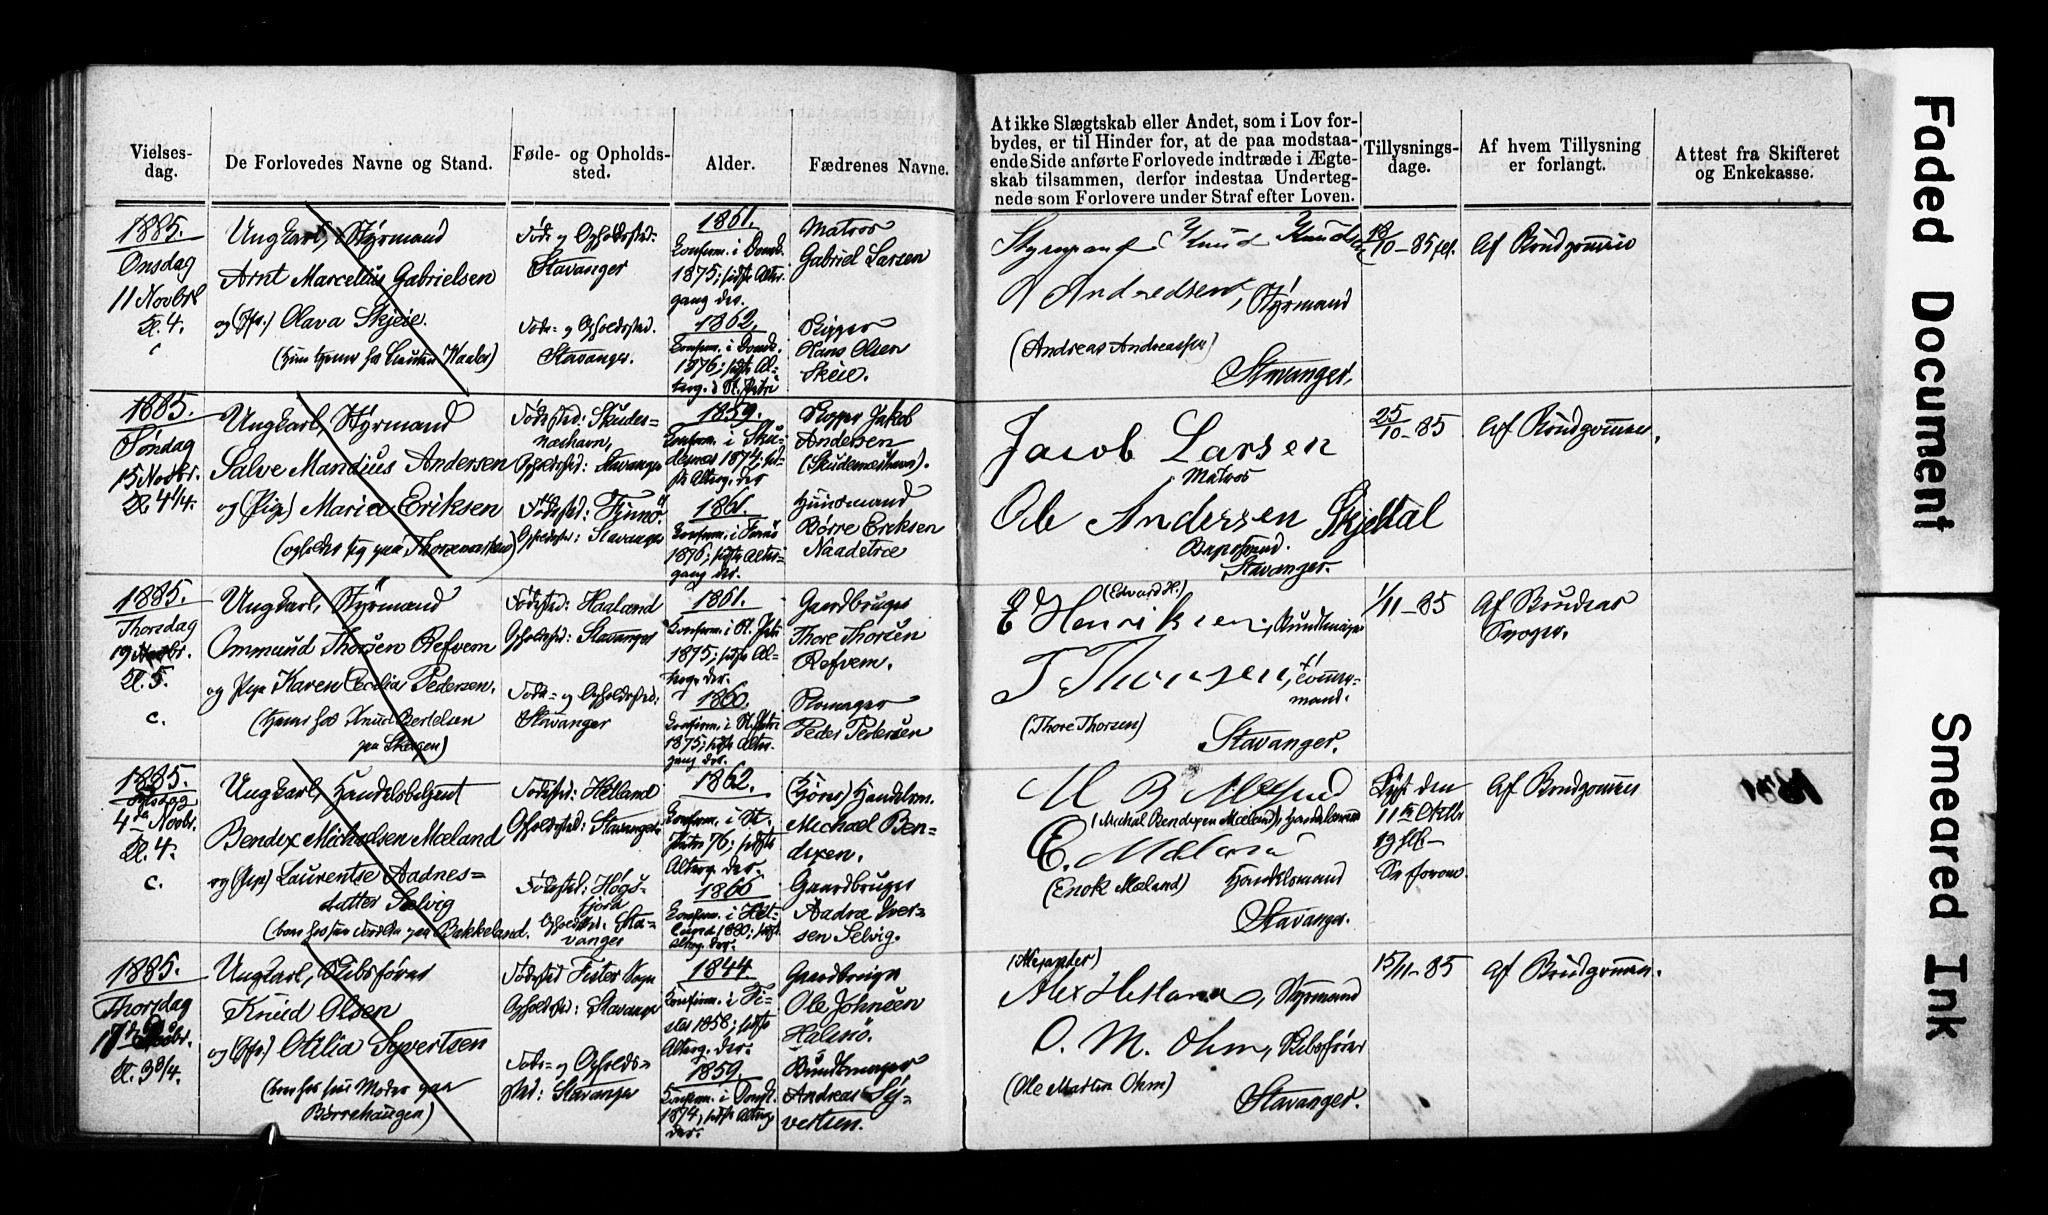 Vielses-
dag.
De Forlovedes Navne og Stand.
Føde- og Opholds-
sted.
Alder.
Fædrenes Navne.
At ikke Slægtskab eller Andet, som i Lov for-
bydes, er til Hinder for, at de paa modstaa-
ende Side anførte Forlovede indtræde i Ægte-
skab tilsammen, derfor indestaa Underteg-
nede som Forlovere under Straf efter Loven.
Tillysnings-
dage.
Af hvem Tillysning
er forlangt.
Attest fra Skifteret
og Enkekasse.
1885.
Onsdag
11 Novbr
Kl. 4.
Ungkarl, Styrmand
Arnt Marcelius Gabrielsen
og (Pge.) Olava Skjeie.
Føde- og Opholdssted:
Stavanger
Føde- og Opholdssted.
Stavanger.
1861.
Konfirm. i Domk.
1875; sidste Alter-
gang der.
1862.
Konfirm. i Domk.
1876; sidste Al-
terg. i St. Petri
Matros
Gabriel Larsen
Skipper
Hans Olsen
Skeie.
Styrmand Knud Knudsen
A Andredsen, Styrmand
(Andreas Andreassen)
Stavanger.
18/10-85
Af Brudgommen
1885.
Søndag
15 Novbr.
Kl. 4 1/4.
Ungkarl, Styrmand
Salve Mandius Andersen
og (Pige) Maria Eriksen
(opholder sig paa
Fødested: Skudes-
næshavn,
Opholdssted: Stavanger
Fødested: Finnø
Opholdssted: Stavanger
1859.
Konfirm. i Sku-
desnæs 1874; sid-
ste Alterg. der
1861.
Konfirm. i Finnø
1876; sidste Alter-
gang der.
Skipper Jakob
Andersen
(Skudesnæshavn).
Huusmand
Børre Eriksen
Naadetræ
Jacob Larsen
Matros
Ole Andersen Skjeldal
Stavanger.
25/10-85
Af Brudgommen.
1885.
Thorsdag
19 Novbr.
Kl. 5.
c.
Ungkarl, Styrmand
Ommund Thorsen Refvem
og Pige Karen Cecilia Pedersen.
(hjemme hos Knud Bertelsen
paa Skagen)
Fødested: Haaland
Opholdssted: Stavanger
Føde- og Opholdssted:
Stavanger
1861.
Konfirm. i St. Petri
1875; sidste Al-
terg. der.
1860.
Konfirm. i St. Petri
1875; sidste Alter-
gang der.
Gaardbruger
Thore Thorsen
Refvem.
Peder Pedersen
(Edvard H.)
E Henriksen, Bundtmager
T Thorsen, Tømmer-
mand.
(Thore Thorsen)
Stavanger.
1/11-85
Af Brudens
Svoger.
1885.
4de Novbr.
Kl. 4.
c.
Ungkarl, Handelsbetjent
Bendix Michælsen Mæland
og (Pige) Laurentse Aadnes-
datter Selvig
paa Bakkeland.
Fødested: Hetland
Opholdssted: Stavanger
Fødested: Høgs-
fjord
Opholdssted: Sta-
vanger
1862.
Konfirm. i St.
Petri 76; sidste
Alterg. der.
1860
Konfirm. i Het-
land 1880; sidste
Alterg. der.
Handelsm.
Michael Ben-
dixen.
Gaardbruger
Aadne Iver-
sen Selvig.
M B Mæland
(Michal Bendixen Mæland), Handelsmand
E. Mæland
(Enok Mæland) Handelsmand
Stavanger.
Lyst den
11te Oktbr
Af Brudgommen
1885.
Thorsdag
Kl. 3 3/4.
Ungkarl, Skibsfører
Knud Olsen
og (Pge.) Otilia Syvertsen
(hos sin Moder paa
Børrehaugen)
Fødested Fister Sogn
Opholdssted: Stavanger
Føde- og Opholds-
sted: Stavanger
1844
Konfirm. i Fi-
ster 1858; sidste
Alterg. der.
1859.
Konfirm. i Domk.
1874; sidste Alterg.
der.
Gaardbruger
Ole Johnsen
Halsnø.
Bundtmager
Andreas Sy-
vertsen.
(Alexander)
Alex Hetland, Styrmand
O. M. Ohm, Skibsfører
(Ole Martin Ohm)
Stavanger.
15/11-85
Af Brudgommen.
Faded Document
Smeared Ink